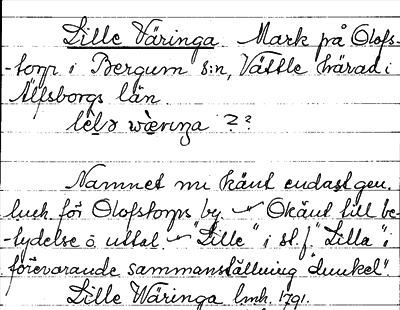 Lille Väringa. Mark på Olofs-
-torp i Bergum s:n, Vättle härad i
Älfsborgs län.
wæringa ??
Namnet nu känt endast gen.
för Olofstorps by. — Okänt till be-
-tydelse o. uttal. — "Lille" i st. f. "Lilla" i
förevarande sammanställning "dunkel".
Lille Wäringa lmk. 1791.